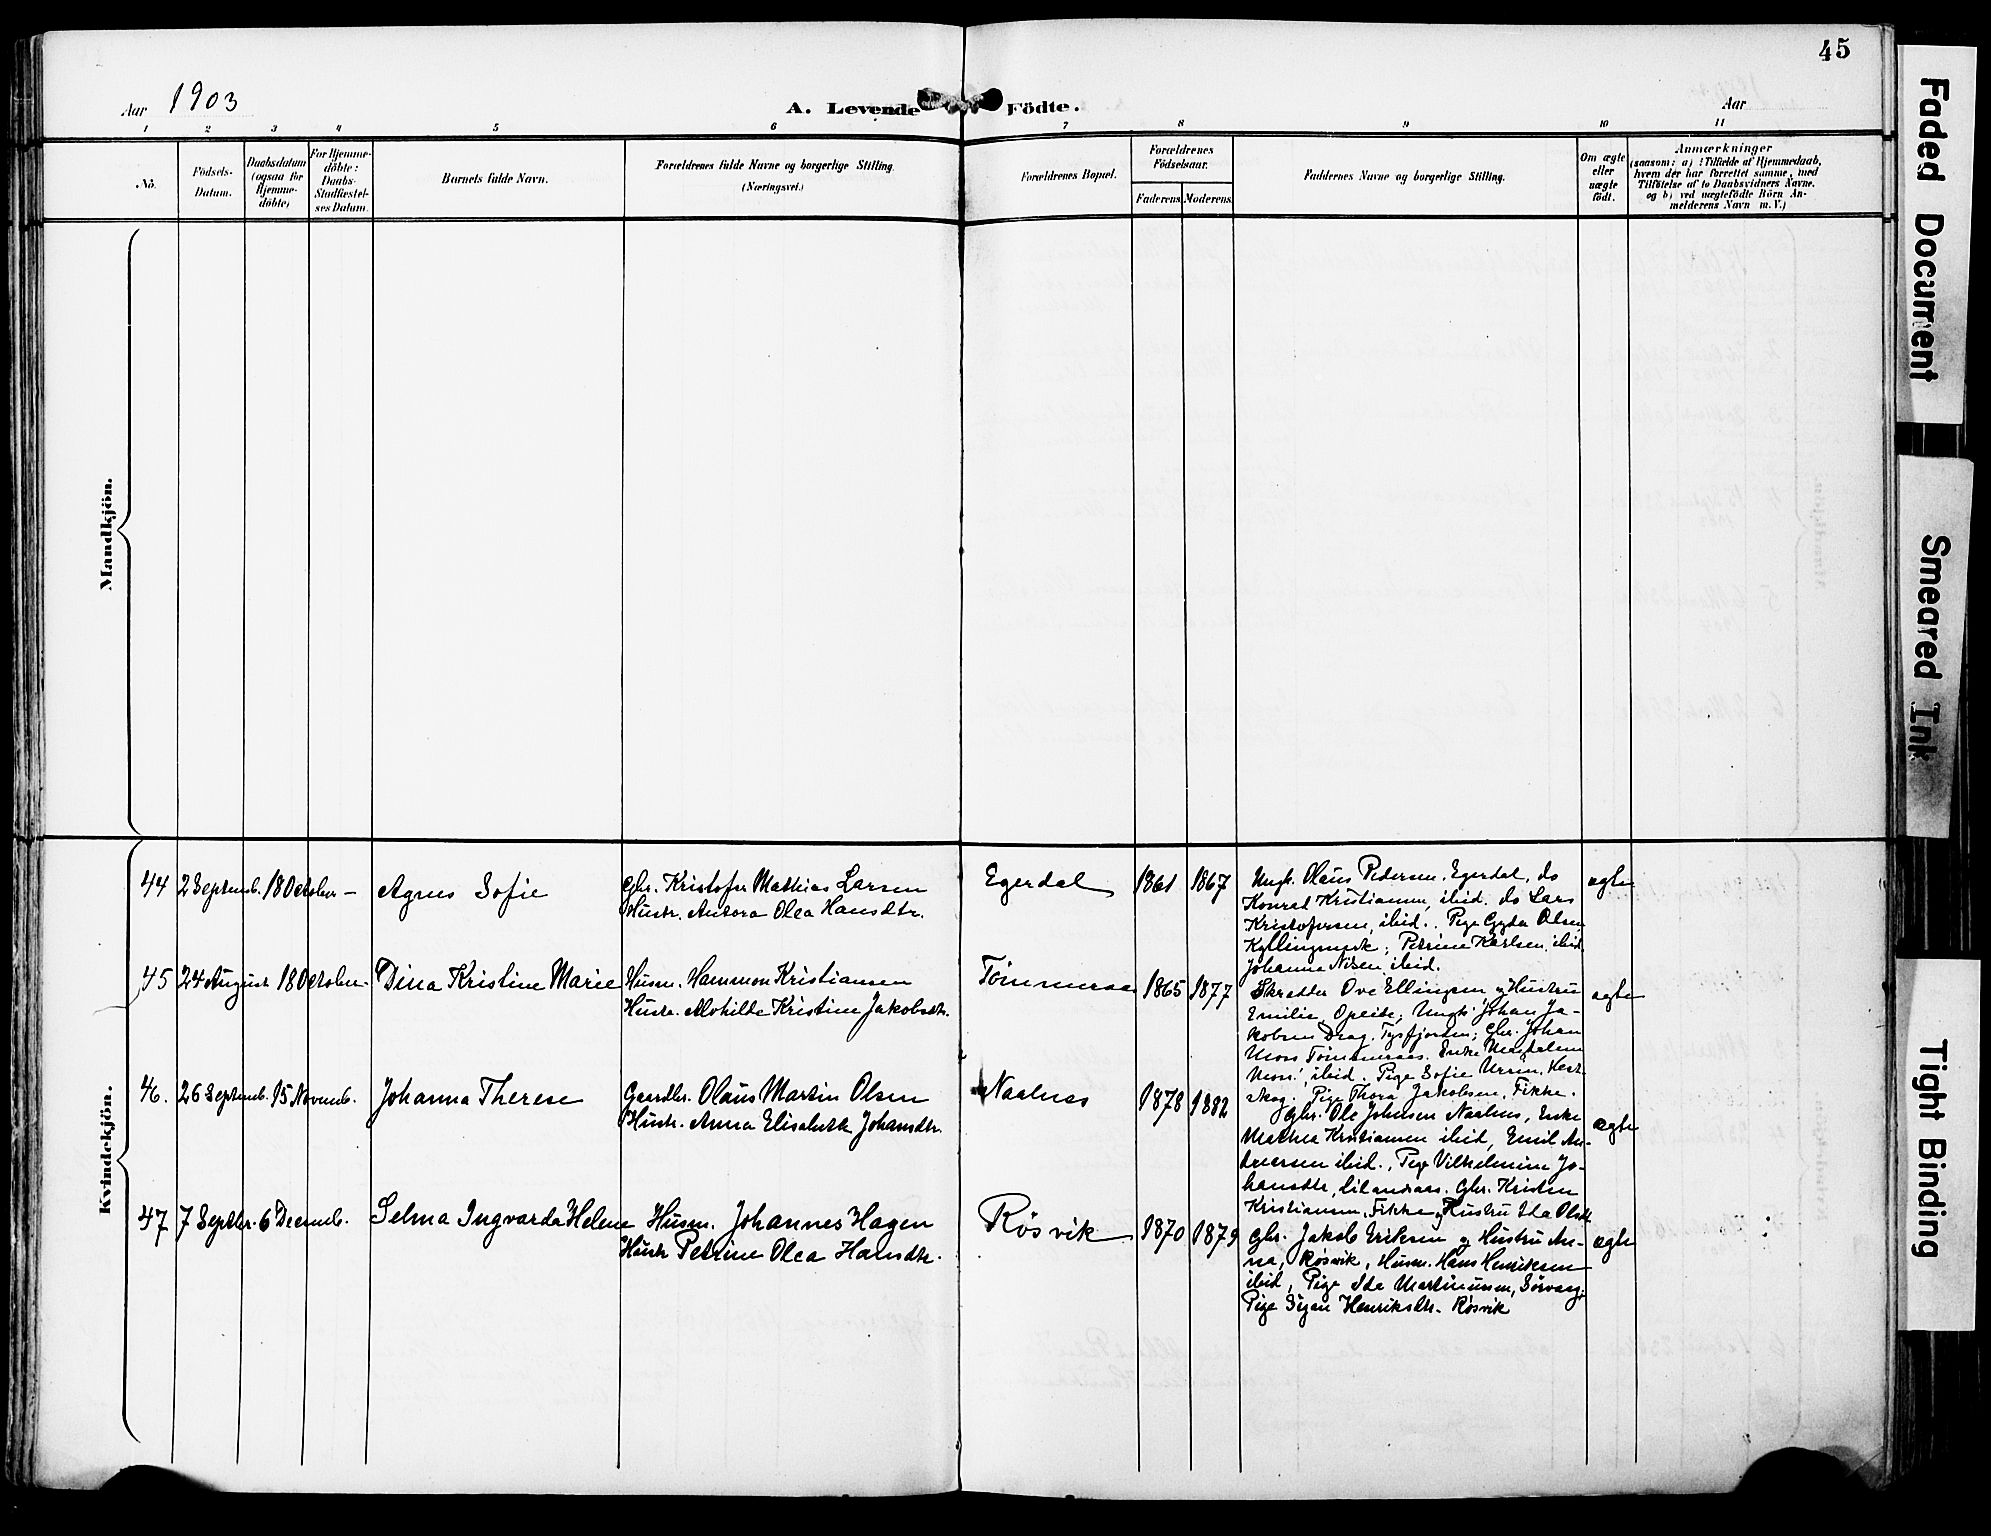 45
Aar 1903
A. Levende Födte.
Aar
1 2 3 4 5 6 7 8 9 10 11
No.
Födsels-
Datum.
Daabsdatum
(ogsaa for
Hjemme-
döbte)
For Hjemme-
döbte:
Daabs-
Stadfæstel-
ses Datum.
Barnets fulde Navn.
Forældrenes fulde Navne og borgerlige Stilling.
(Næringsvei.)
Forældrenes Bopæl.
Forældrenes
Födselsaar.
Faderens. Moderens.
Faddernes Navne og borgerlige Stilling.
Om ægte
eller
uægte
födt.
Anmærkninger
(saasom: a) i Tilfælde af Hjemmedaab,
hvem der har forrettet samme, med
Tilföielse af to Daabsvidners Navne.
og b) ved uægtefödte Börn An-
melderens Navn m. V.)
Mandkjön.
Kvindekjön.
44 2 Septemb. 18 October - Agnes Sofie
Gbr. Kristofer Mathias Larsen
Hustr. Aurora Olea Hansdtr.
Egerdal 1861 1867
Ungk. Olaus Pedersen, Egerdal, do
Konrad Kristiansen, ibid. do Lars
Kristofersen, ibid. Pige Gyda Olsen
Kyllingmark; Petrine Karlsen, ibid
Johanna Nilsen, ibid.
ægte
45 24 August 18 October. Dina Kristine Marie
Husm. Hammon Kristiansen
Hustr. Mathilde Kristine Jakobsdtr.
Tømmeraas 1865 1877
Skrædder Ove Ellingsen og Hustru
Emilie, Opeite; Ungk. Johan Ja-
kobsen Drag, Tysfjorden; Gbr. Johan
Mons Tømmeraas. Enke Magdalena
Mons, ibid. Pige Sofie Urssin, Hest-
skog. Pige Thora Jakobsen, Fikke.
ægte
46. 26 Septemb. 15 Novemb. Johanna Therese
Gaardbr. Olaus Martin Olsen
Hustr. Anna Elisabeth Johansdtr.
Naalnes 1878 1882
Gbr. Ole Johnsen Naalnes, Enke
Mathea Kristiansen ibid, Emil An-
dreersen ibid., Pige Vilhelmine Jo-
hansdtr, Lilandsaas. Gbr. Kristen
Kristiansen, Fikke og Hustru Ida Olsdtr
ægte
47 7 Septbr. 6 Decemb. Selma Ingvarda Helene
Husm. Johannes Hagen
Hustr Petrine Olea Hansdtr.
Røsvik 1870 1879
Gbr. Jakob Eriksen og Hustru An-
na, Røsvik, Husm. Hans Henriksen
ibid, Pige Ida Martinussen, Sørvang;
Pige Sigan Henriksdtr. Røsvik
ægte
Faded Document
Smeared Ink
Tight Binding